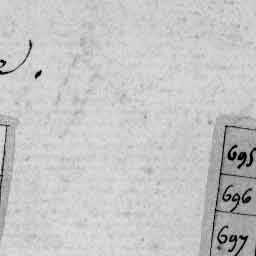 695
696
697